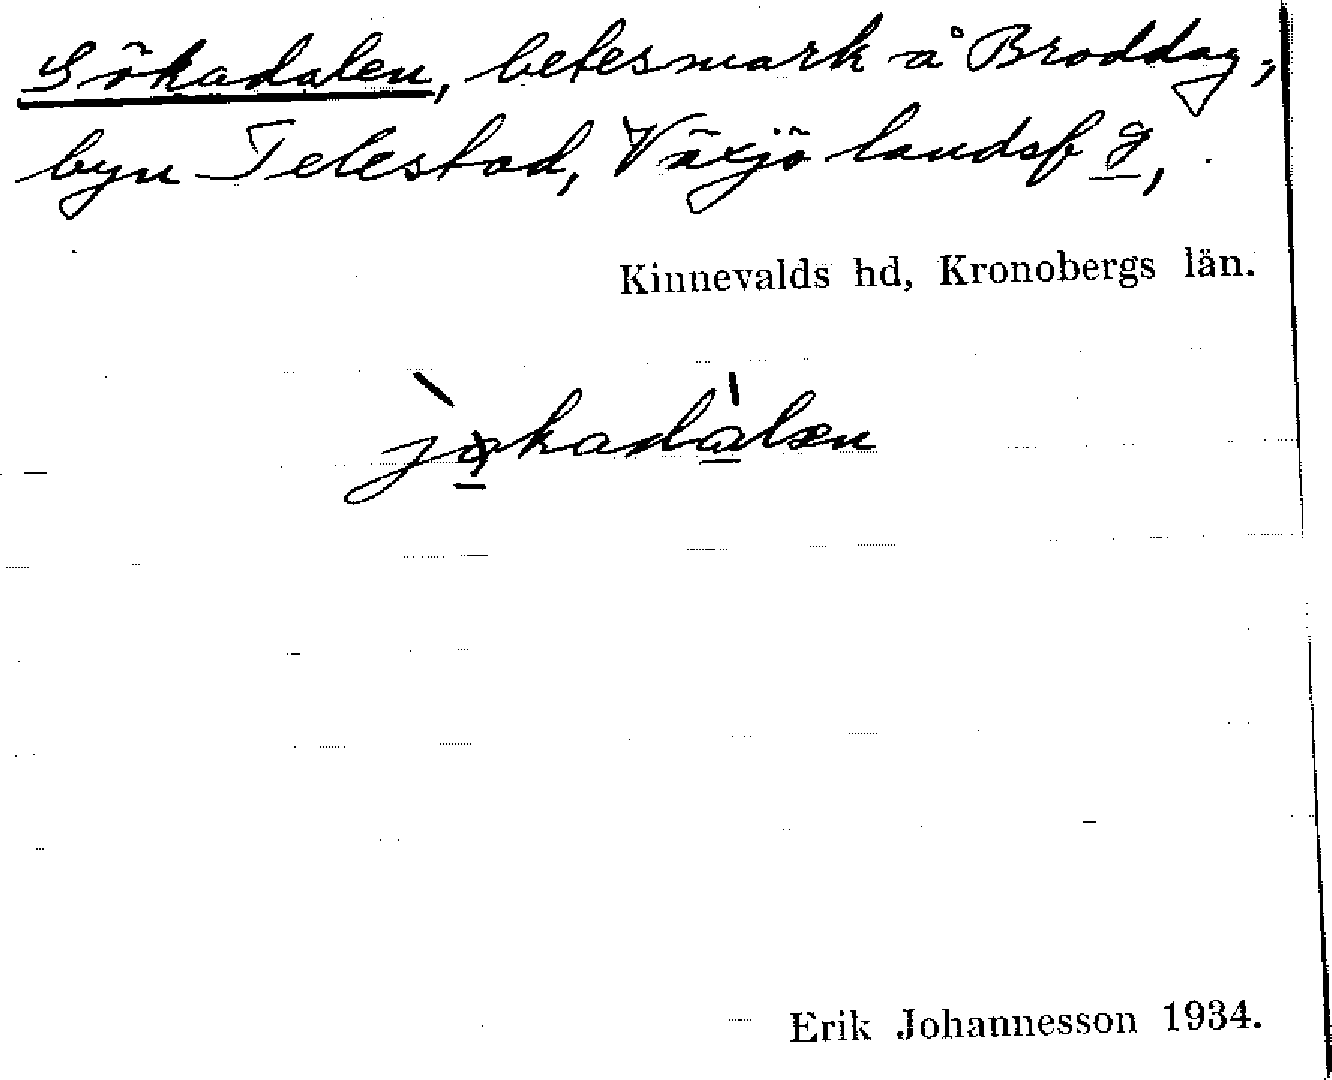 Gökadalen, betesmark å Broddag,
byn Telestad, Växjö landsf g,
Kinnevalds hd, Kronobergs län.
jøkadalæn
Erik Johannesson 1934.